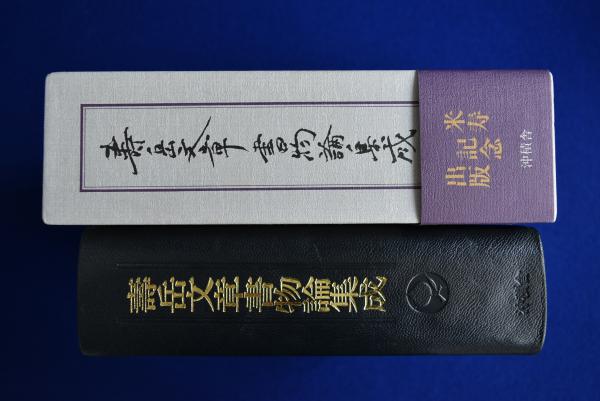 壽岳文章書物論集成
米寿
記念
出版
沖積舎
壽岳文章書物論集成
沖積舎